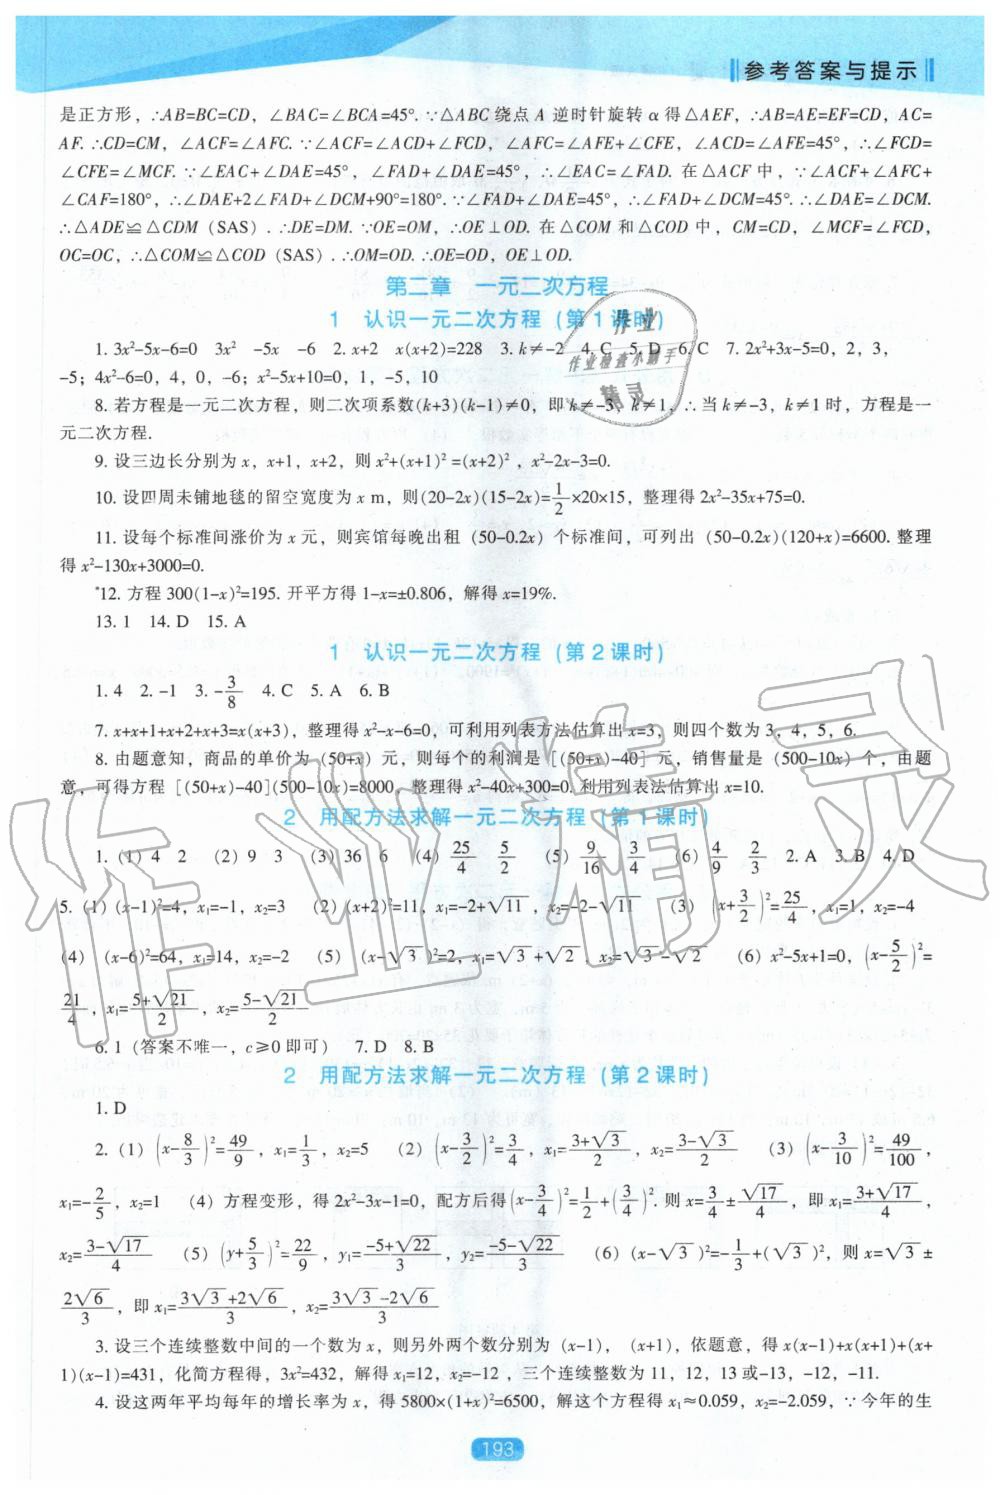 参考答案与提示
是正方形，∴AB=BC=CD，∠BAC=∠BCA=45°. ∵△ABC 绕点 A 逆时针旋转 α 得△AEF，∴AB=AE=EF=CD，AC=
AF. ∴CD=CM，∠ACF=∠AFC. ∵∠ACF=∠ACD+∠FCD，∠AFC=∠AFE+∠CFE，∠ACD=∠AFE=45°，∴∠FCD=
∠CFE=∠MCF. ∵∠EAC+∠DAE=45°，∠FAD+∠DAE=45°，∴∠EAC=∠FAD. 在△ACF 中，∵∠ACF+∠AFC+
∠CAF=180°，∴∠DAE+2∠FAD+∠DCM+90°=180°. ∵∠FAD+∠DAE=45°，∴∠FAD+∠DCM=45°. ∴∠DAE=∠DCM.
∴△ADE≌△CDM（SAS）. ∴DE=DM. ∵OE=OM，∴OE⊥OD. 在△COM 和△COD 中，CM=CD，∠MCF=∠FCD，
OC=OC，∴△COM≌△COD（SAS）. ∴OM=OD. ∴OE=OD，OE⊥OD.
第二章　一元二次方程
1　认识一元二次方程（第 1 课时）
1. 3x²-5x-6=0　3x²　-5x　-6　2. x+2　x(x+2)=228　3. k≠-2　4. C　5. D　6. C　7. 2x²+3x-5=0，2，3，
-5；4x²-6=0，4，0，-6；x²-5x+10=0，1，-5，10
8. 若方程是一元二次方程，则二次项系数(k+3)(k-1)≠0，即 k≠-3，k≠1，∴当 k≠-3，k≠1 时，方程是一
元二次方程.
9. 设三边长分别为 x，x+1，x+2，则 x²+(x+1)²=(x+2)²，x²-2x-3=0.
10. 设四周未铺地毯的留空宽度为 x m，则(20-2x)(15-2x)=1/2×20×15，整理得 2x²-35x+75=0.
11. 设每个标准间涨价为 x 元，则宾馆每晚出租（50-0.2x）个标准间，可列出（50-0.2x)(120+x)=6600. 整理
得 x²-130x+3000=0.
*12. 方程 300(1-x)²=195. 开平方得 1-x=±0.806，解得 x=19%.
13. 1　14. D　15. A
1　认识一元二次方程（第 2 课时）
1. 4　2. -1　3. -3/8　4. C　5. A　6. B
7. x+x+1+x+2+x+3=x(x+3)，整理得 x²-x-6=0，可利用列表方法估算出 x=3，则四个数为 3，4，5，6.
8. 由题意知，商品的单价为（50+x）元，则每个的利润是［(50+x)-40］元，销售量是（500-10x）个，由题
意，可得方程［(50+x)-40](500-10x)=8000，整理得 x²-40x+300=0. 利用列表法估算出 x=10.
2　用配方法求解一元二次方程（第 1 课时）
1.（1）4　2　（2）9　3　（3）36　6　（4）25/4　5/2　（5）9/16　3/4　（6）4/9　2/3　2. A　3. B　4. D
5.（1）(x-1)²=4，x₁=-1，x₂=3　（2）(x+2)²=11，x₁=-2+√11，x₂=-2-√11　（3）(x+3/2)²=25/4，x₁=1，x₂=-4
（4）(x-6)²=64，x₁=14，x₂=-2　（5）(x-√3)²=2，x₁=√3+√2，x₂=√3-√2　（6）x²-5x+1=0，(x-5/2)²=
21/4，x₁=(5+√21)/2，x₂=(5-√21)/2
6. 1（答案不唯一，c≥0 即可）　7. D　8. B
2　用配方法求解一元二次方程（第 2 课时）
1. D
2.（1）(x-8/3)²=49/9，x₁=1/3，x₂=5　（2）(x-3/2)²=3/4，x₁=(3+√3)/2，x₂=(3-√3)/2　（3）(x-3/10)²=49/100，
x₁=-2/5，x₂=1　（4）方程变形，得 2x²-3x-1=0，配方后得(x-3/4)²=1/2+(3/4)². 则 x=3/4±√17/4，即 x₁=(3+√17)/4，
x₂=(3-√17)/4　（5）(y+5/3)²=22/9，y₁=(-5+√22)/3，y₂=(-5-√22)/3　（6）(x-√3)²=-1/3+(√3)²，则 x=√3±
2√6/3，即 x₁=(3√3+2√6)/3，x₂=(3√3-2√6)/3
3. 设三个连续整数中间的一个数为 x，则另外两个数分别为（x-1），（x+1），依题意，得 x(x-1)+x(x+1)+(x+
1)(x-1)=431，化简方程得，3x²=432，解得 x₁=12，x₂=-12，三个连续整数为 11，12，13 或-13，-12，-11.
4. 设这两年平均每年的增长率为 x，得 5800×(1+x)²=6500，解这个方程得 x₁≈0.059，x₂=-2.059，∵今年的生
193
作业
作业检查小助手
精灵
作业精灵